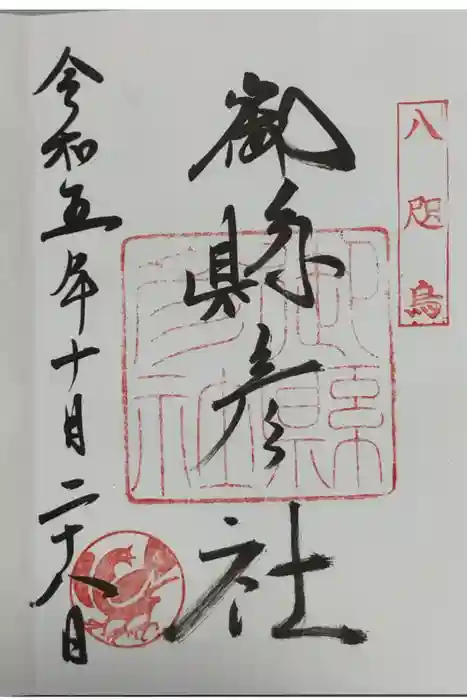 八咫烏
御縣彦社
令和五年十月二十八日
御縣彦社